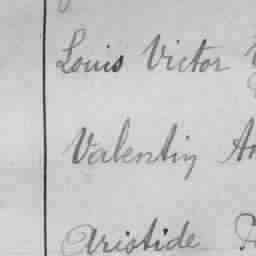 Louis Victor
Valentin
Aristide